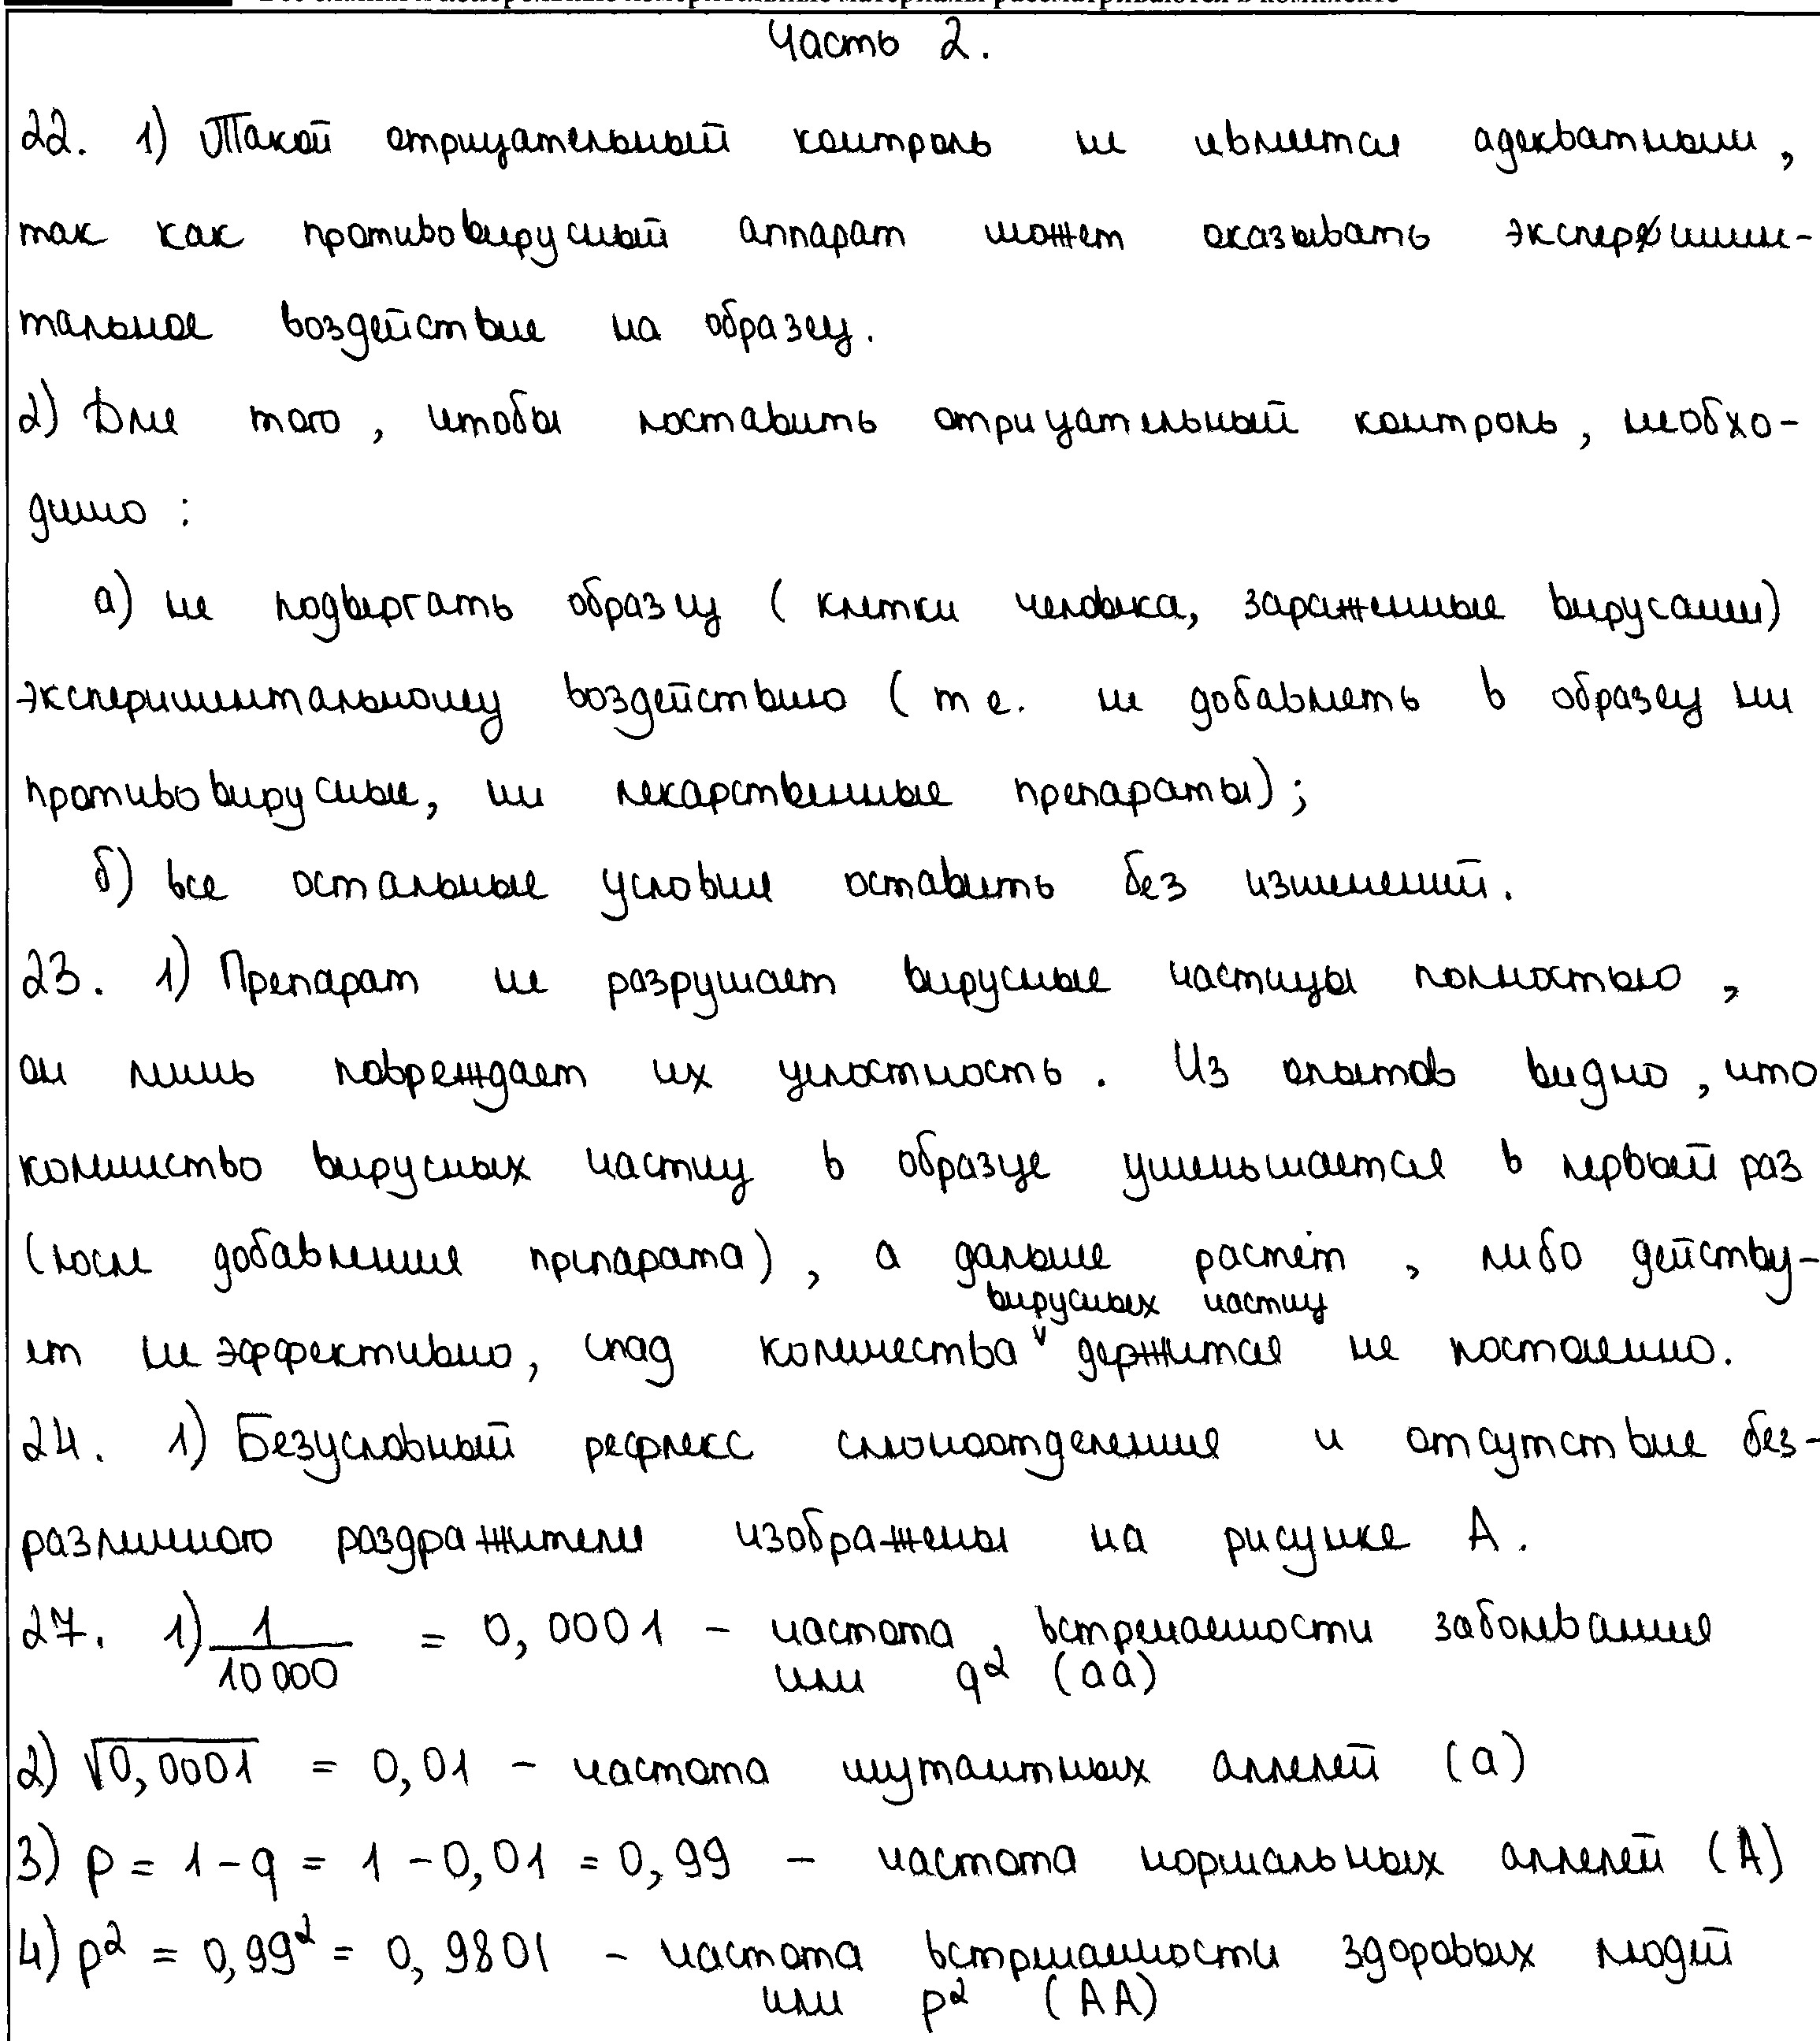 Часть 2.
22. 1) Такой отрицательный контроль не является адекватным,
так как противовирусный аппарат может оказывать эксперимен-
тальное воздействие на образец.
2) Для того, чтобы поставить отрицательный контроль, необхо-
димо :
а) не подвергать образец ( клетки человека, зараженные вирусами)
экспериментальному воздействию ( т е. не добавлять в образец ни
противовирусные, ни лекарственные препараты) ;
б) все остальные условия оставить без изменений.
23. 1) Препарат не разрушает вирусные частицы полностью ,
он лишь повреждает их целостность . Из опытов видно , что
количество вирусных частиц в образце уменьшается в первый раз
(после добавления препарата) , а дальше растёт , либо действу-
вирусных частиц
ет не эффективно, спад количества держится не постоянно.
24. 1) Безусловный рефлекс слюноотделения и отсутствие без-
различного раздражителя изображены на рисунке А.
27. 1) 1/10 000 = 0, 0001 - частота встречаемости заболевания
или q² (аа)
2) √0, 0001 = 0, 01 - частота мутантных аллелей (а)
3) p = 1 - q = 1 - 0, 01 = 0, 99 - частота нормальных аллелей (А)
4) p² = 0, 99² = 0, 9801 - частота встречаемости здоровых людей
или p² (АА)